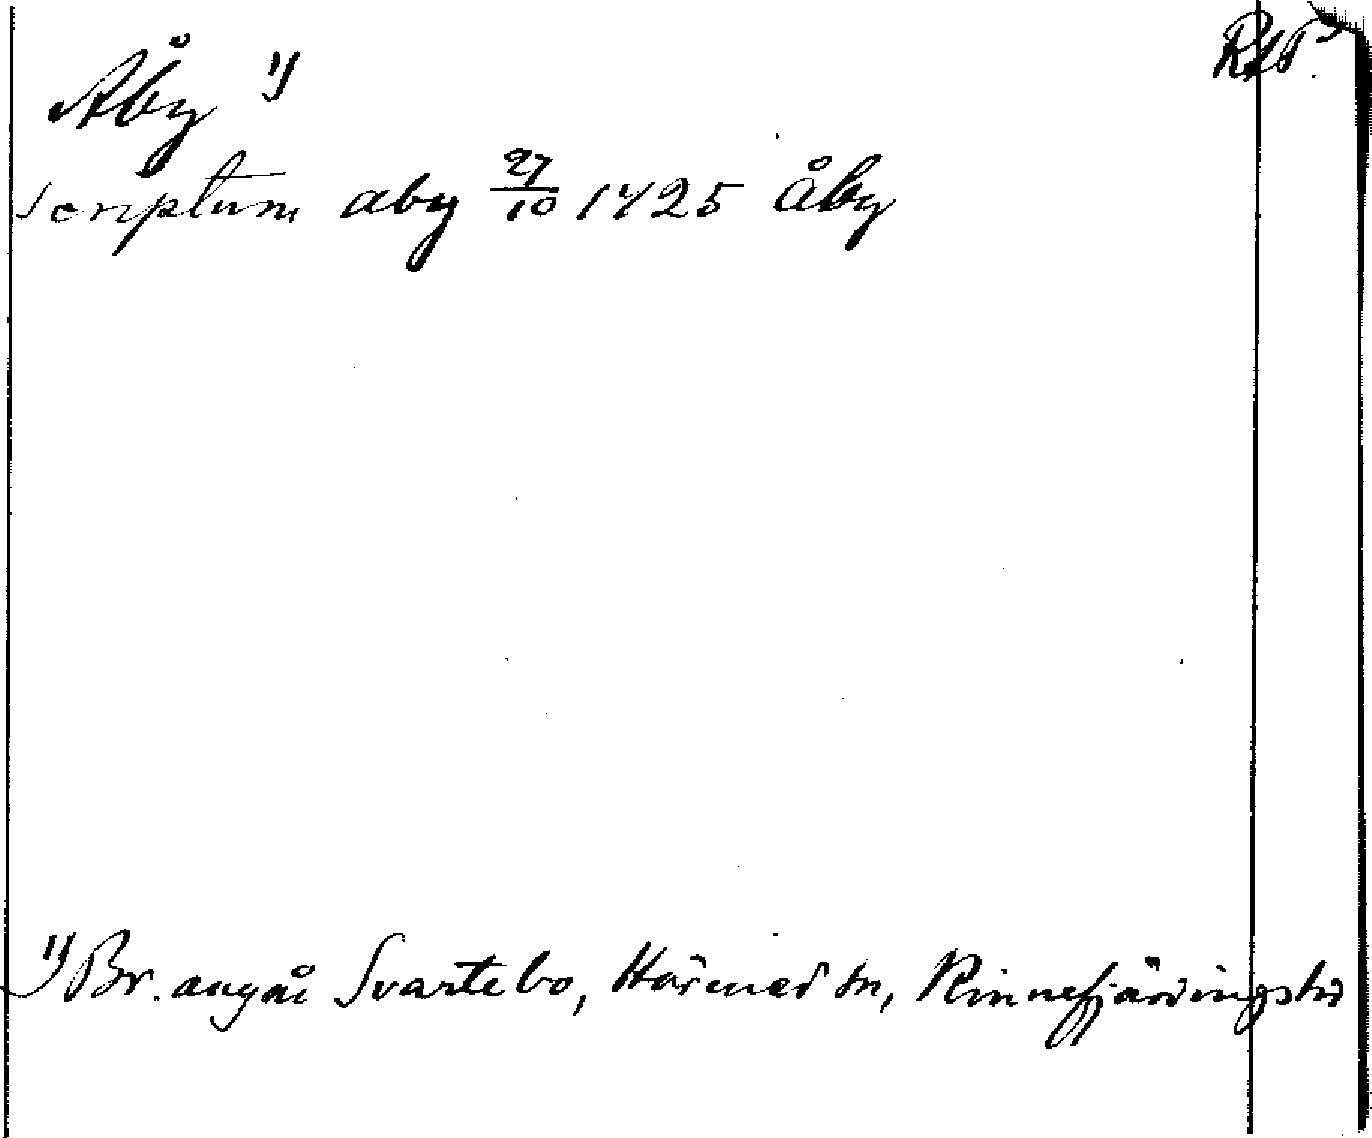 Åby 1) RAP
scriptum aby 27/10 1425 Åby
1) Br. angår Svartebo, Härned sn, Kinnefjärdings hd